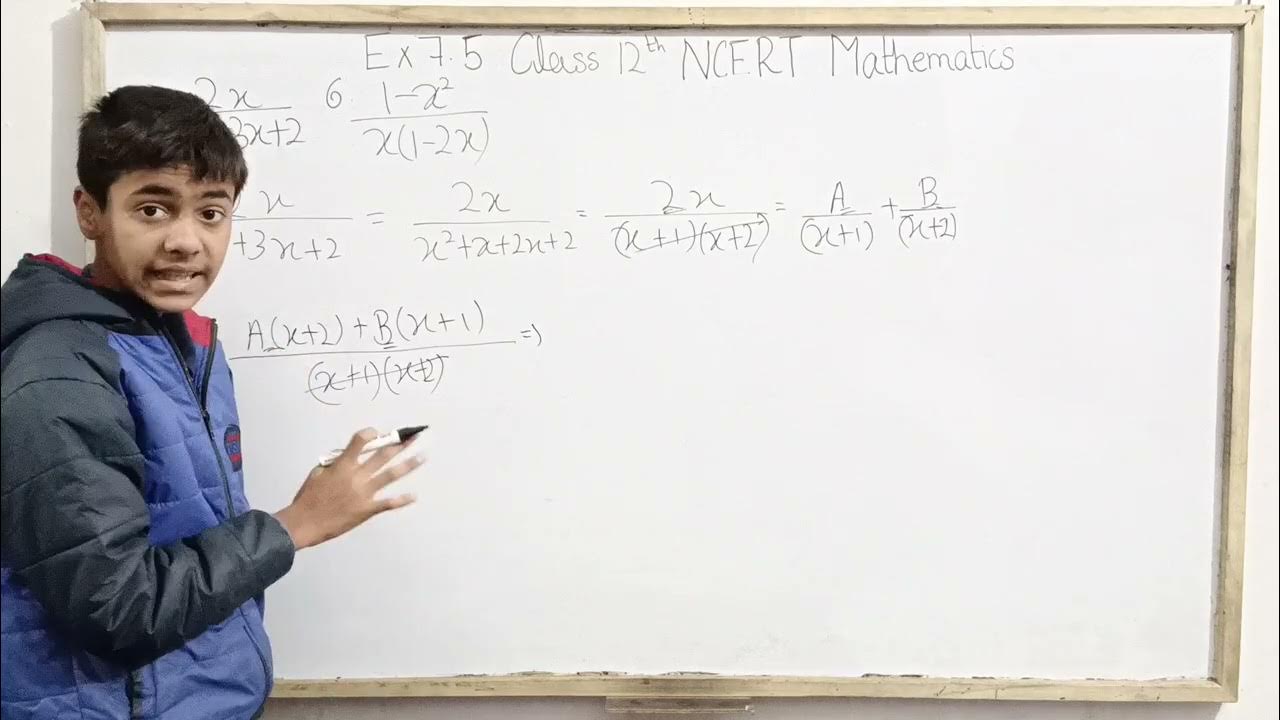 Ex 7.5 Class 12th NCERT Mathematics
2x / 3x+2   6. 1-x² / x(1-2x)
x / +3x+2 = 2x / x²+x+2x+2 = 2x / (x+1)(x+2) = A / (x+1) + B / (x+2)
A(x+2)+B(x+1) / (x+1)(x+2) =>